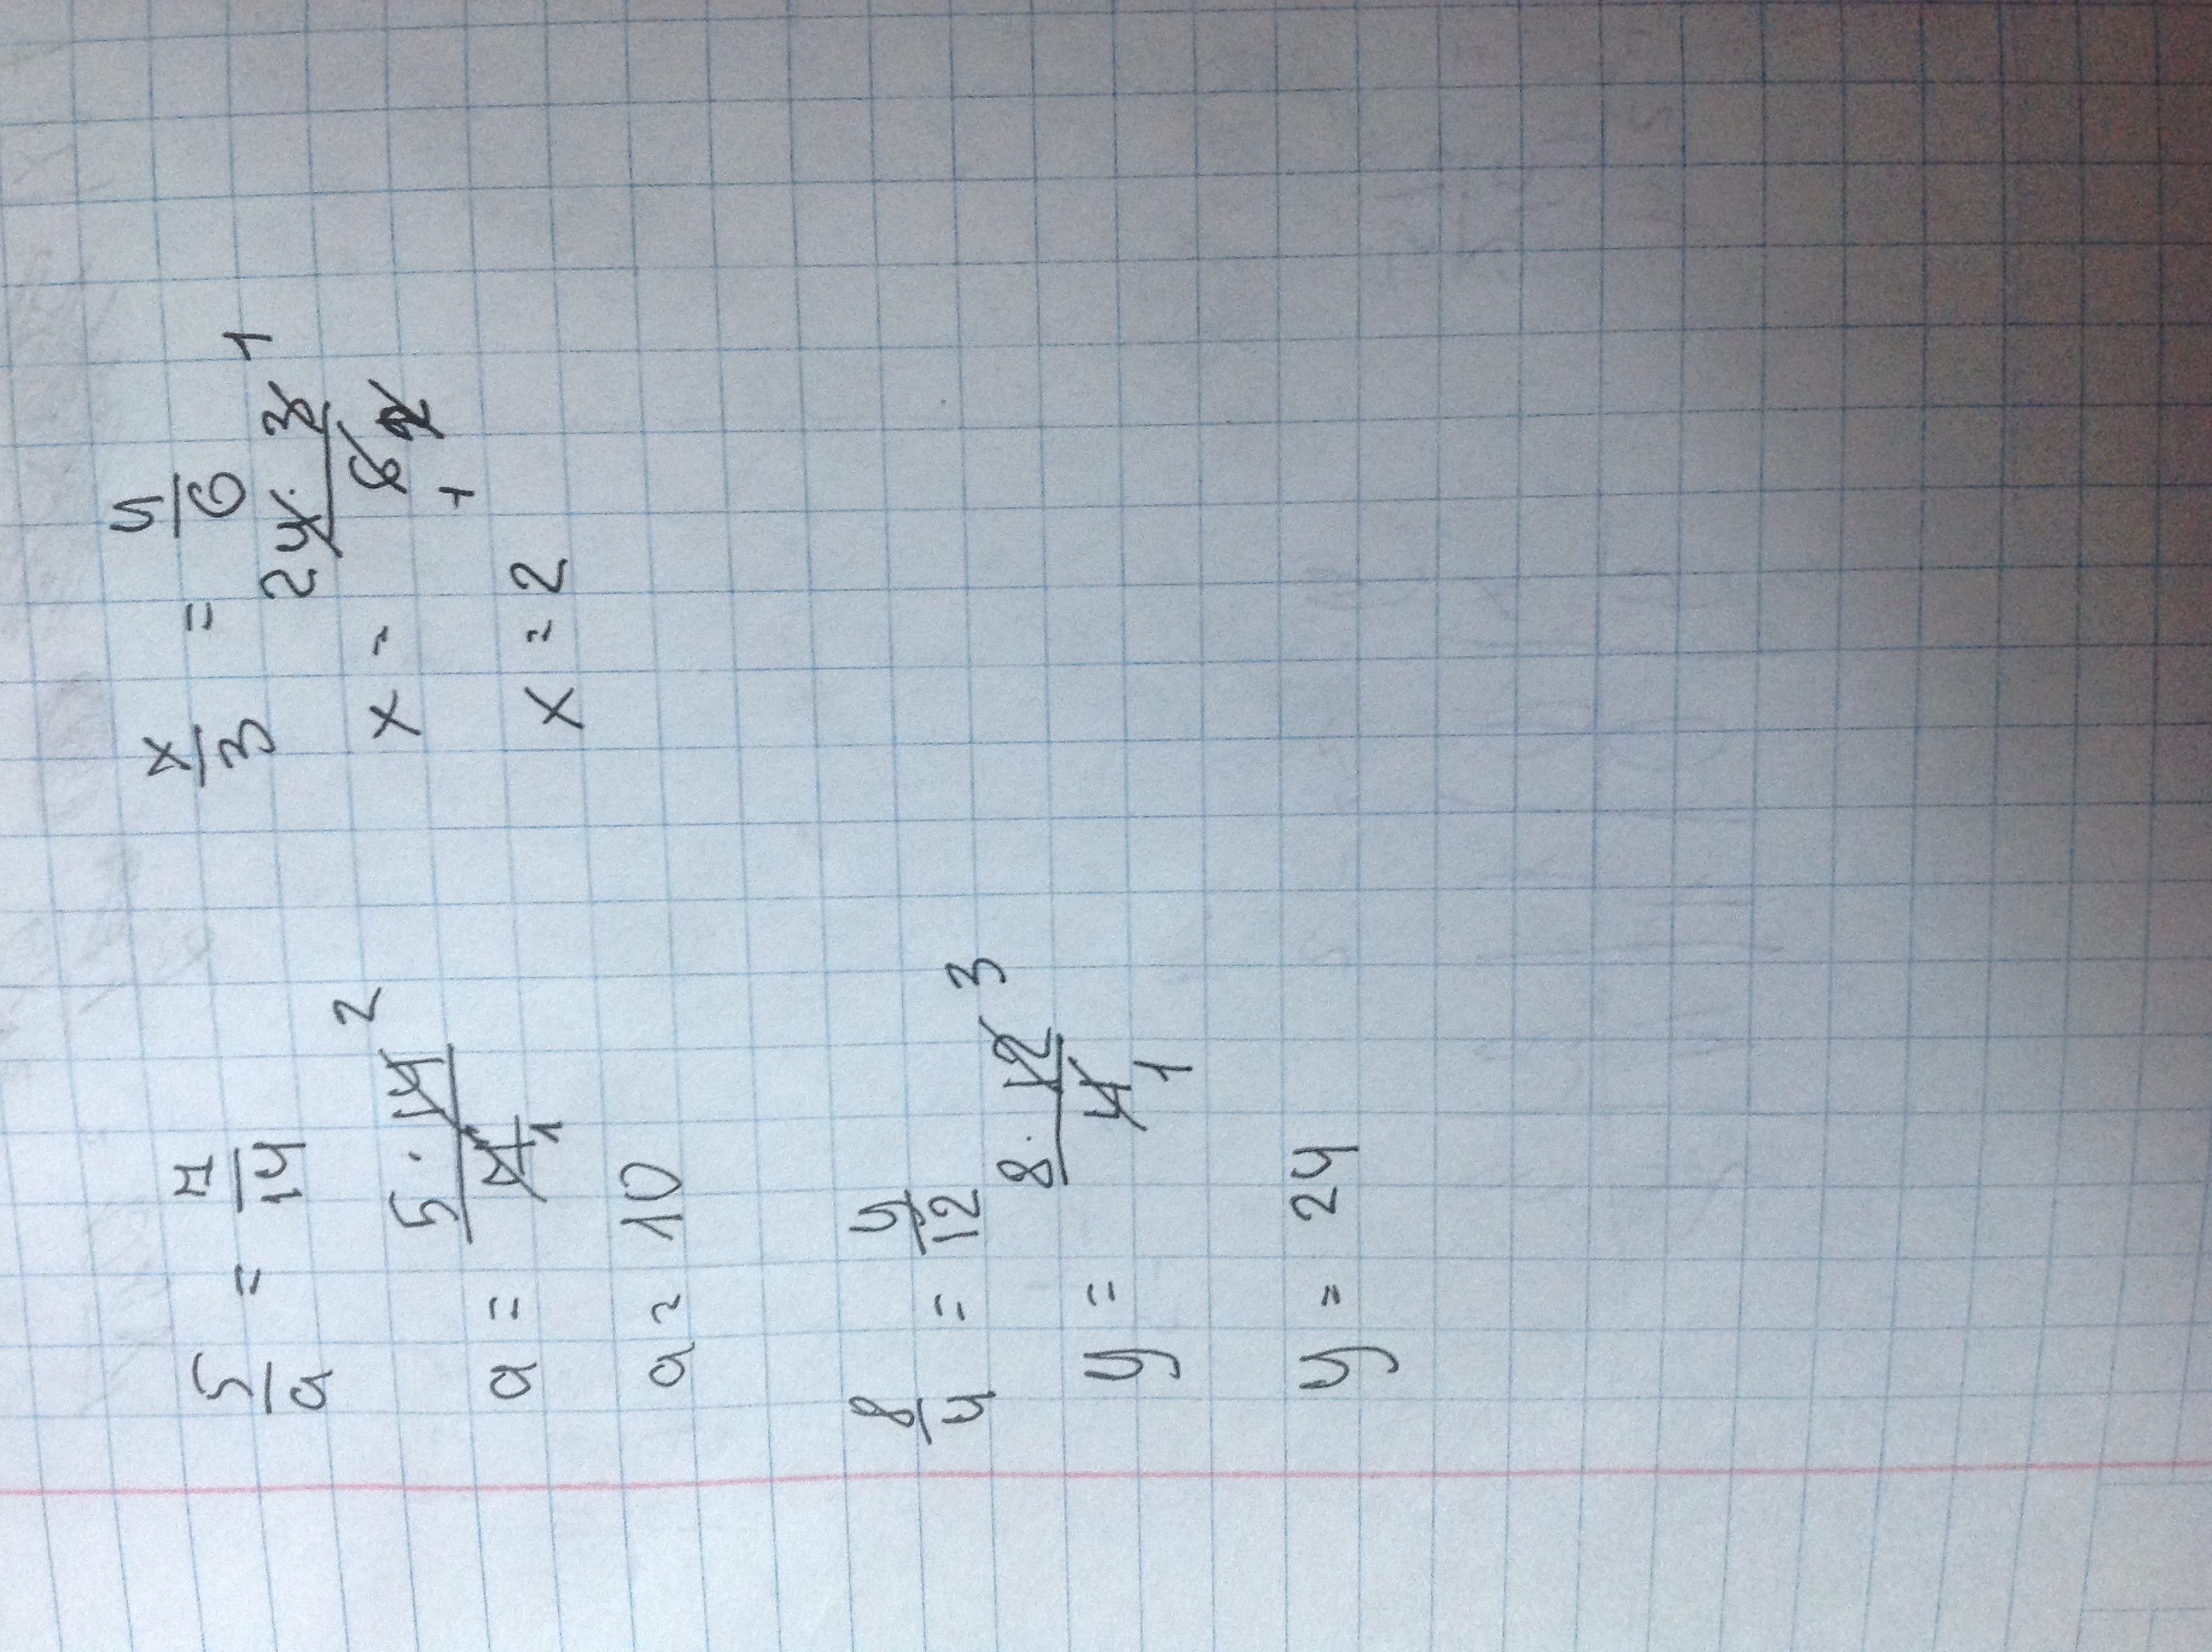 5/a = 7/14
a = 5 · 14 2 / 7 1
a = 10
8/4 = y/12
y = 8 · 12 3 / 4 1
y = 24
x/3 = 4/6
x = 2 4 · 3 1 / 6 2 1
x = 2